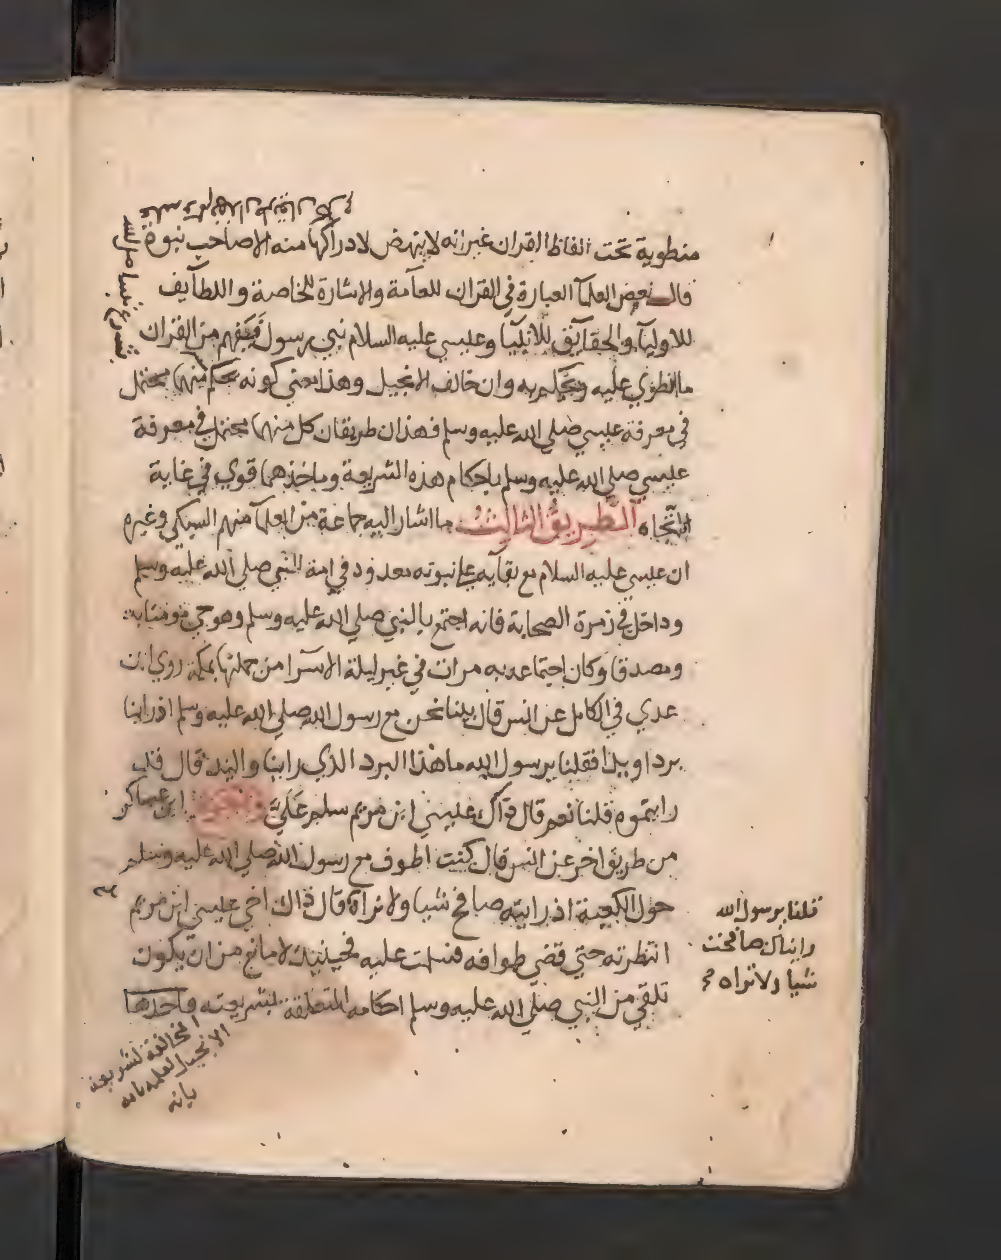 منطوية تحت الفاظ القران غير انه لا ينهض لادراكها منه الا صاحب نبوة
قال بعض العلمآ العبارة في القران للعآمة والاشارة للخاصة و اللطآيف
للاوليآ والحقآيق للانبيآ وعيسي عليه السلام نبي رسول فيفهم من القران
ما انطوي عليه ويحكم به وان خالف الانجيل وهذا معني كونه يحكم
في معرفة عيسي صلي الله عليه وسلم فهذان طريقان كل منهما محتمل في معرفة
عيسي صلي الله عليه وسلم باحكام هذه الشريعة وماخذهما قوي في غاية
الاتجاه الطريق الثالث ما اشار اليه جماعة من العلمآ منهم السبكي وغيره
ان عيسي عليه السلام مع بقآيه علي نبوته معدود في امة النبي صلي الله عليه وسلم
وداخل في زمرة الصحابة فانه اجتمع بالنبي صلي الله عليه وسلم وهو حي مومنا به
ومصدقا وكان اجتماعه به مرات في غير ليلة الاسرا من جملتها بمكة روي ابن
عدي في الكامل عن انس قال بينا نحن مع رسول الله صلي الله عليه وسلم اذ راينا
بردا ويدا فقلنا يرسول الله ما هذا البرد الذي راينا واليد قال قد
رايتموه قلنا نعم قال ذاك عيسي ابن مريم سلم علي واخرج ابن عساكر
من طريق اخر عن انس قال كنت اطوف مع رسول الله صلي الله عليه وسلم
حول الكعبة اذ رايته صافح شيا ولا نراه قال ذاك اخي عيسي ابن مريم
انتظرته حتي قضي طوافه فسلمت عليه فحينيذ لا مانع من ان يكون
تلقي من النبي صلي الله عليه وسلم احكامه المتعلقة بشريعته
قلنا يرسول الله
رايناك صافحت
شيا ولا نراه
المخالفة لشريعة
الانجيل لعلمه بانه